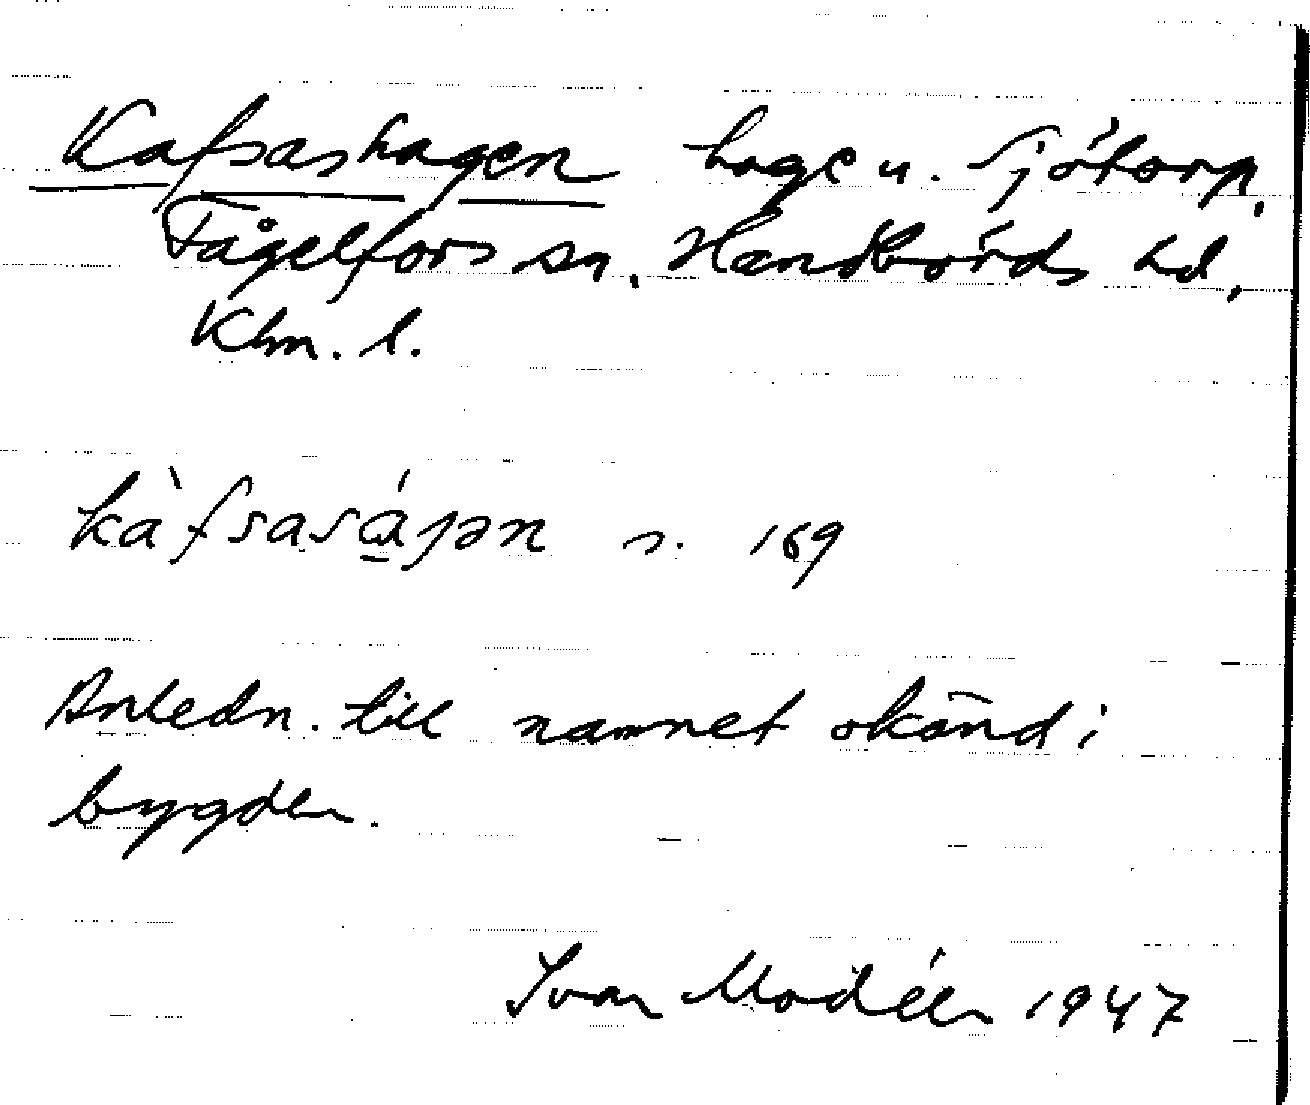 Kafsashagen hage u. Sjötorp,
Fågelfors sn, Handbörds hd,
Klm. l.
kàfsasá̱jən s. 169
Anledn. till namnet okänd i
bygden.
Ivar Modéer 1947